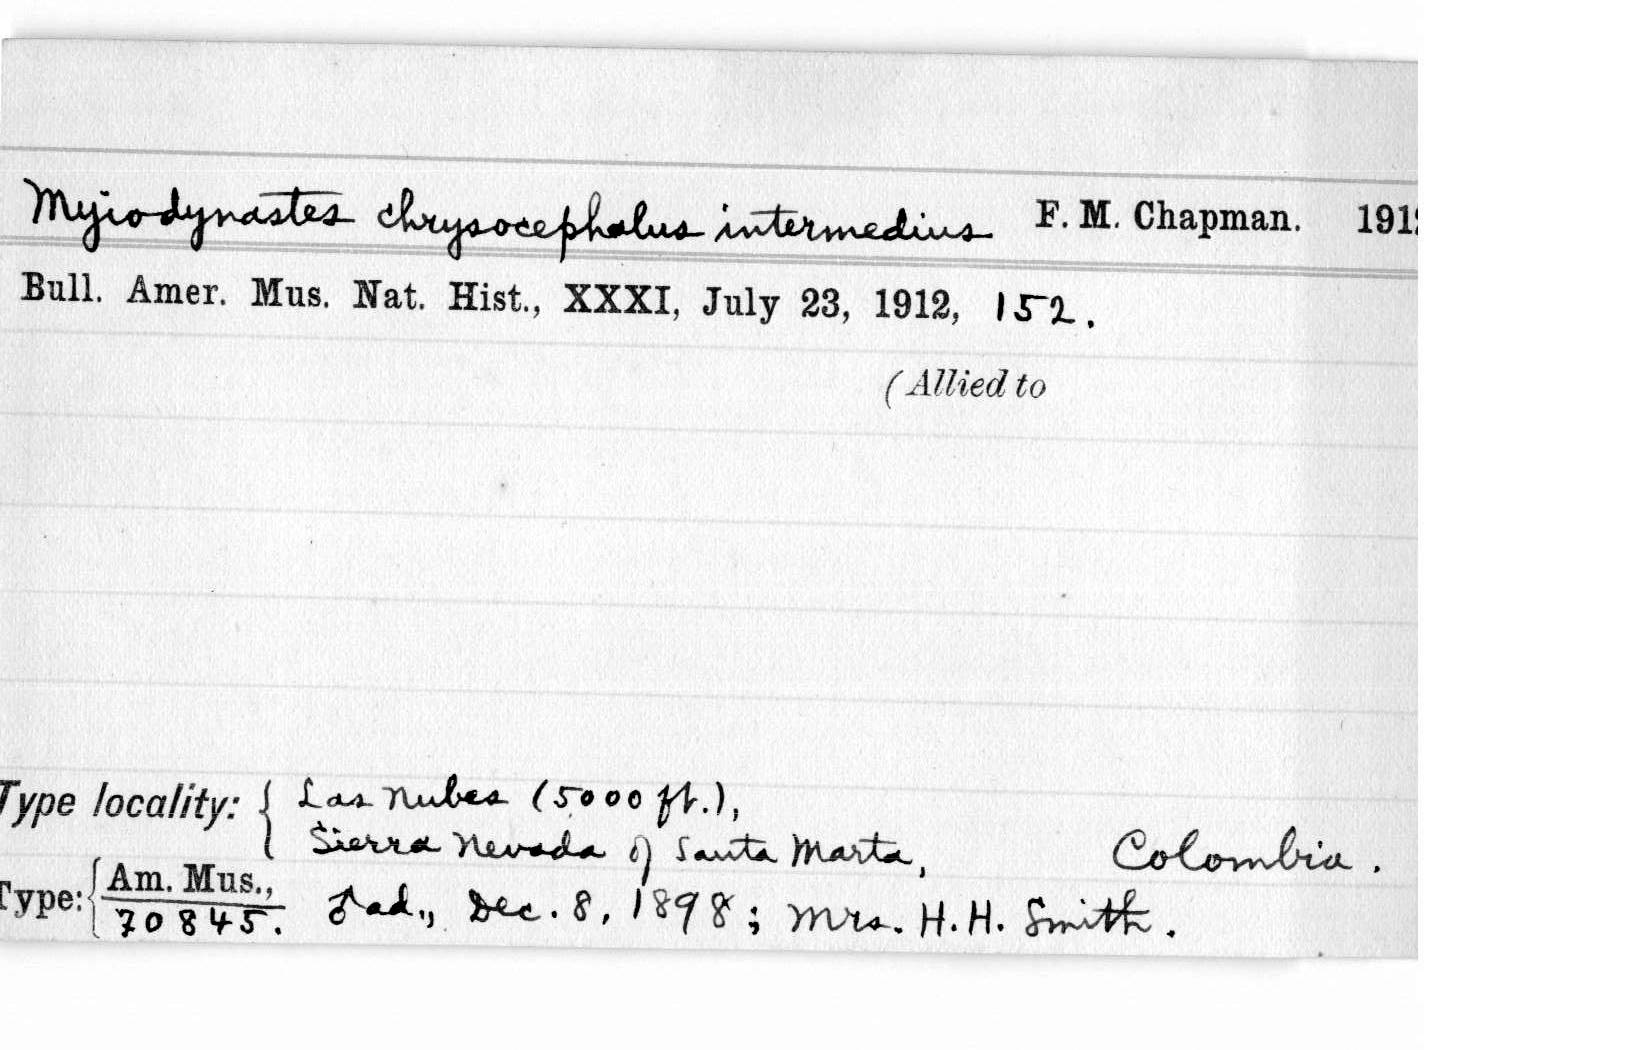 Myiodynastes chrysocephalus intermedius F. M. Chapman. 1912
Bull. Amer. Mus. Nat. Hist., XXXI, July 23, 1912, 152.
(Allied to
Type locality: { Las Nubes (5000 ft.),
Sierra Nevada of Santa Marta, Colombia.
Type: { Am. Mus.,
70845. ♂ ad., Dec. 8, 1898; Mrs. H. H. Smith.